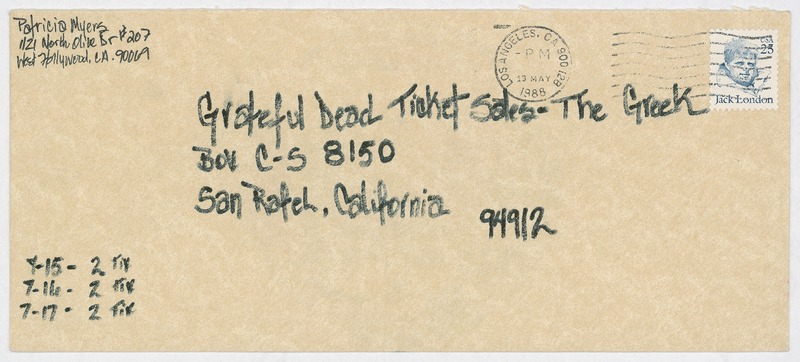 Patricia Myers
1121 North Olive Dr #207
West Hollywood, CA. 90069
LOS ANGELES, CA 900 12B
- PM
13 MAY
1988
USA
25
Jack London
Grateful Dead Ticket Sales - The Greek
Box C-S 8150
San Rafel, California
94912
7-15 - 2 Tix
7-16 - 2 Tix
7-17 - 2 Tix